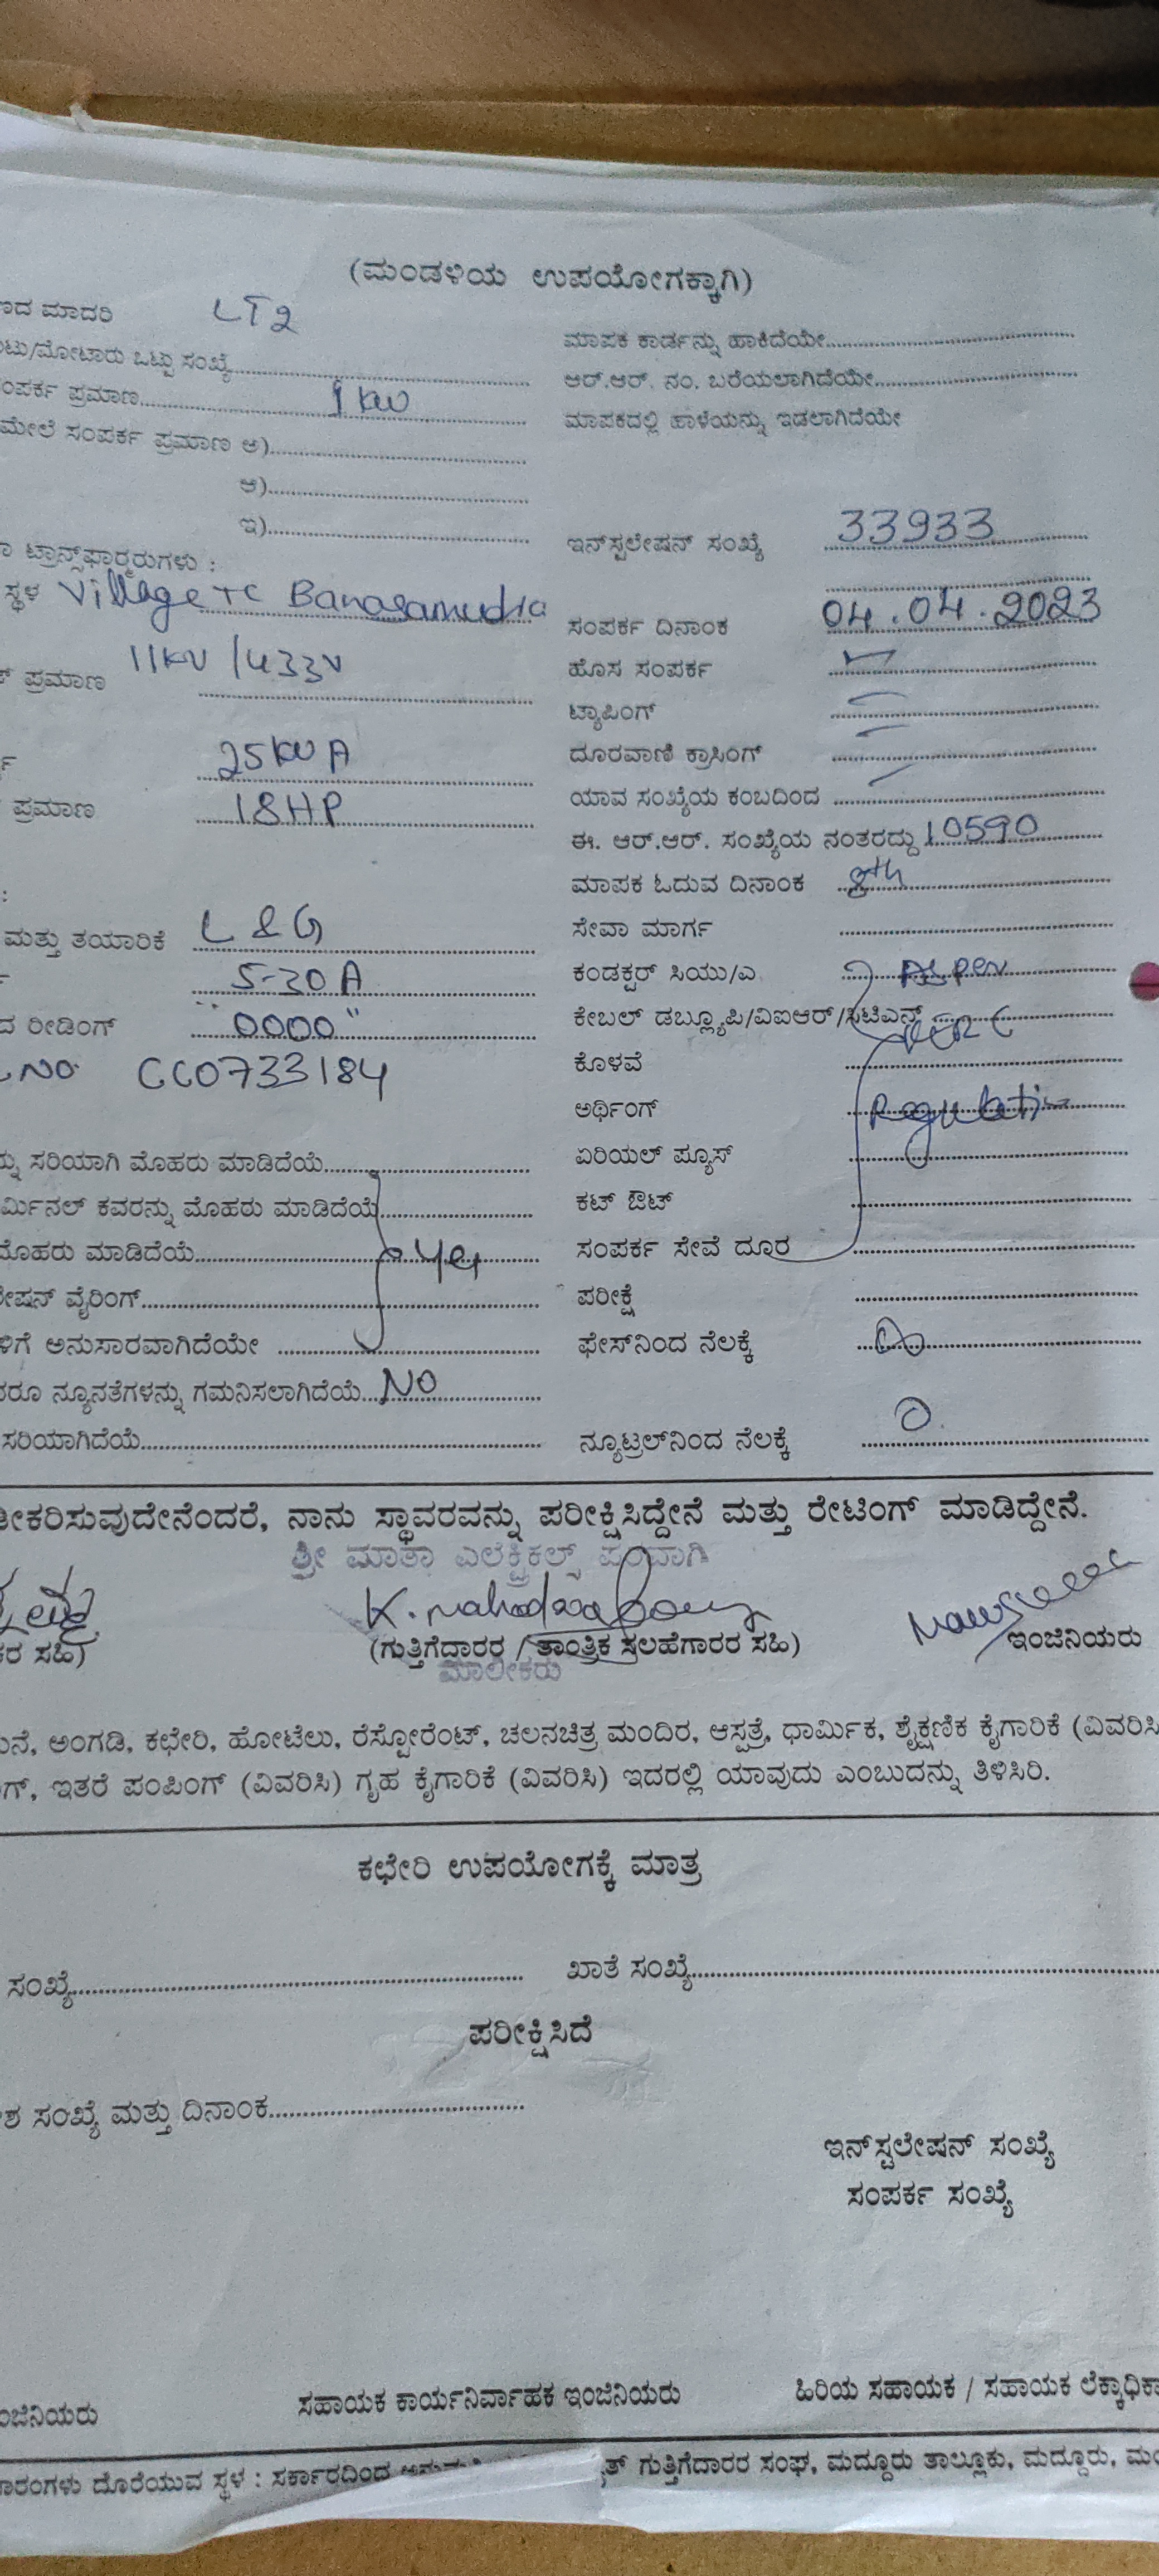 (ಮಂಡಳಿಯ ಉಪಯೋಗಕ್ಕಾಗಿ)
ಣದ ಮಾದರಿ LT2
ಮಾಪಕ ಕಾರ್ಡನ್ನು ಹಾಕಿದೆಯೇ
ಟು/ಮೋಟಾರು ಒಟ್ಟು ಸಂಖ್ಯೆ
ಆರ್.ಆರ್. ನಂ. ಬರೆಯಲಾಗಿದೆಯೇ
ಂಪರ್ಕ ಪ್ರಮಾಣ 1 kw
ಮಾಪಕದಲ್ಲಿ ಹಾಳೆಯನ್ನು ಇಡಲಾಗಿದೆಯೇ
ಮೇಲೆ ಸಂಪರ್ಕ ಪ್ರಮಾಣ ಅ)
ಆ)
ಇ)
ಇನ್‌ಸ್ಟಲೇಷನ್ ಸಂಖ್ಯೆ 33933
ಟ್ರಾನ್ಸ್‌ಫಾರ್ಮರುಗಳು :
ಸ್ಥಳ Village TC Banasamudra
ಸಂಪರ್ಕ ದಿನಾಂಕ 04.04.2023
ಹೊಸ ಸಂಪರ್ಕ ✓
ಪ್ರಮಾಣ 11KV/433V
ಟ್ಯಾಪಿಂಗ್ –
ದೂರವಾಣಿ ಕ್ರಾಸಿಂಗ್ –
25KVA
ಯಾವ ಸಂಖ್ಯೆಯ ಕಂಬದಿಂದ –
ಪ್ರಮಾಣ 18HP
ಈ. ಆರ್.ಆರ್. ಸಂಖ್ಯೆಯ ನಂತರದ್ದು 10590
ಮಾಪಕ ಓದುವ ದಿನಾಂಕ 8th
:
ಮತ್ತು ತಯಾರಿಕೆ L & G
ಸೇವಾ ಮಾರ್ಗ
5-30 A
ಕಂಡಕ್ಟರ್ ಸಿಯು/ಎ As per
ದ ರೀಡಿಂಗ್ 0000"
ಕೇಬಲ್ ಡಬ್ಲ್ಯೂಪಿ/ವಿಐಆರ್/ಸಿಟಿಎಸ್
NO CC0733184
ಕೊಳವೆ
ಅರ್ಥಿಂಗ್ Regulation
ನ್ನು ಸರಿಯಾಗಿ ಮೊಹರು ಮಾಡಿದೆಯೆ
ಏರಿಯಲ್ ಪ್ಯೂಸ್
ರ್ಮಿನಲ್ ಕವರನ್ನು ಮೊಹರು ಮಾಡಿದೆಯೆ
ಕಟ್ ಔಟ್
ಮೊಹರು ಮಾಡಿದೆಯೆ yes
ಸಂಪರ್ಕ ಸೇವೆ ದೂರ
ಲೇಷನ್ ವೈರಿಂಗ್
ಪರೀಕ್ಷೆ
ಳಿಗೆ ಅನುಸಾರವಾಗಿದೆಯೇ
ಫೇಸ್‌ನಿಂದ ನೆಲಕ್ಕೆ
ದರೂ ನ್ಯೂನತೆಗಳನ್ನು ಗಮನಿಸಲಾಗಿದೆಯೆ NO
ಸರಿಯಾಗಿದೆಯೆ
ನ್ಯೂಟ್ರಲ್‌ನಿಂದ ನೆಲಕ್ಕೆ 0
ೀಕರಿಸುವುದೇನೆಂದರೆ, ನಾನು ಸ್ಥಾವರವನ್ನು ಪರೀಕ್ಷಿಸಿದ್ದೇನೆ ಮತ್ತು ರೇಟಿಂಗ್ ಮಾಡಿದ್ದೇನೆ.
ಶ್ರೀ ಮಾತಾ ಎಲೆಕ್ಟ್ರಿಕಲ್ಸ್ ಪರವಾಗಿ
ರ ಸಹಿ)
(ಗುತ್ತಿಗೆದಾರರ / ತಾಂತ್ರಿಕ ಸಲಹೆಗಾರರ ಸಹಿ)
ಇಂಜಿನಿಯರು
ಮಾಲೀಕರು
ಮನೆ, ಅಂಗಡಿ, ಕಛೇರಿ, ಹೋಟೆಲು, ರೆಸ್ಟೋರೆಂಟ್, ಚಲನಚಿತ್ರ ಮಂದಿರ, ಆಸ್ಪತ್ರೆ, ಧಾರ್ಮಿಕ, ಶೈಕ್ಷಣಿಕ ಕೈಗಾರಿಕೆ (ವಿವರಿಸಿ
ಗ್, ಇತರೆ ಪಂಪಿಂಗ್ (ವಿವರಿಸಿ) ಗೃಹ ಕೈಗಾರಿಕೆ (ವಿವರಿಸಿ) ಇದರಲ್ಲಿ ಯಾವುದು ಎಂಬುದನ್ನು ತಿಳಿಸಿರಿ.
ಕಛೇರಿ ಉಪಯೋಗಕ್ಕೆ ಮಾತ್ರ
ಸಂಖ್ಯೆ
ಖಾತೆ ಸಂಖ್ಯೆ
ಪರೀಕ್ಷಿಸಿದೆ
ಶ ಸಂಖ್ಯೆ ಮತ್ತು ದಿನಾಂಕ
ಇನ್‌ಸ್ಟಲೇಷನ್ ಸಂಖ್ಯೆ
ಸಂಪರ್ಕ ಸಂಖ್ಯೆ
ಂಜಿನಿಯರು
ಸಹಾಯಕ ಕಾರ್ಯನಿರ್ವಾಹಕ ಇಂಜಿನಿಯರು
ಹಿರಿಯ ಸಹಾಯಕ / ಸಹಾಯಕ ಲೆಕ್ಕಾಧಿಕಾ
ಾರಂಗಳು ದೊರೆಯುವ ಸ್ಥಳ : ಸರ್ಕಾರದಿಂದ ತ್ ಗುತ್ತಿಗೆದಾರರ ಸಂಘ, ಮದ್ದೂರು ತಾಲ್ಲೂಕು, ಮದ್ದೂರು, ಮಂ